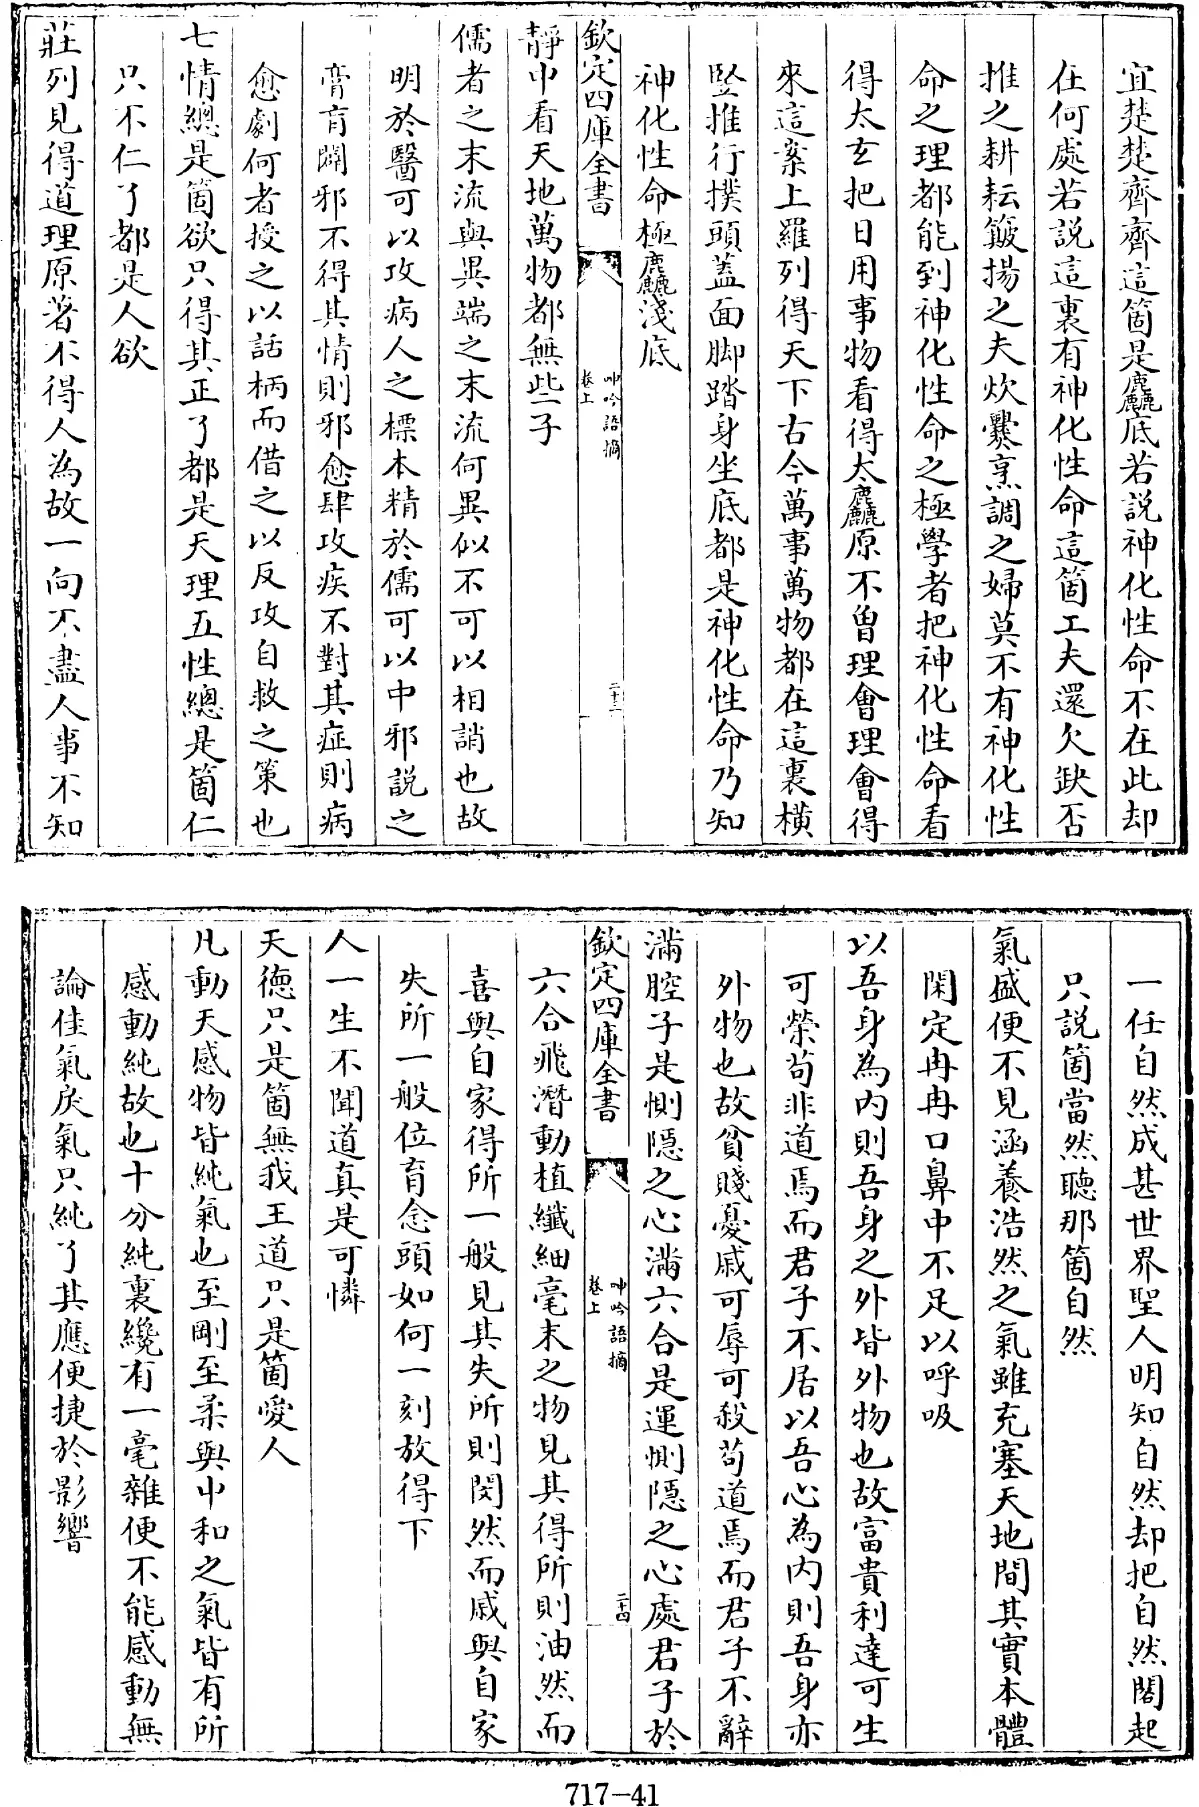 宜楚楚齊齊這箇是麤底若説神化性命不在此却
在何處若説這裏有神化性命這箇工夫還欠缺否
推之耕耘簸揚之夫炊爨烹調之婦莫不有神化性
命之理都能到神化性命之極學者把神化性命看
得太玄把日用事物看得太麤原不曽理會理會得
來這案上羅列得天下古今萬事萬物都在這裏横
豎推行撲頭蓋面脚踏身坐底都是神化性命乃知
神化性命極麤淺底
欽定四庫全書
呻吟語摘
卷上
二十三
靜中看天地萬物都無些子
儒者之末流與異端之末流何異似不可以相誚也故
明於醫可以攻病人之標本精於儒可以中邪説之
膏肓闢邪不得其情則邪愈肆攻疾不對其症則病
愈劇何者授之以話柄而借之以反攻自救之策也
七情總是箇欲只得其正了都是天理五性總是箇仁
只不仁了都是人欲
莊列見得道理原著不得人為故一向不盡人事不知
一任自然成甚世界聖人明知自然却把自然閣起
只説箇當然聽那箇自然
氣盛便不見涵養浩然之氣雖充塞天地間其實本體
閑定冉冉口鼻中不足以呼吸
以吾身為内則吾身之外皆外物也故富貴利達可生
可榮苟非道焉而君子不居以吾心為内則吾身亦
外物也故貧賤憂戚可辱可殺苟道焉而君子不辭
滿腔子是惻隱之心滿六合是運惻隱之心處君子於
欽定四庫全書
呻吟語摘
卷上
二十四
六合飛潛動植纖細毫末之物見其得所則油然而
喜與自家得所一般見其失所則閔然而戚與自家
失所一般位育念頭如何一刻放得下
人一生不聞道真是可憐
天德只是箇無我王道只是箇愛人
凡動天感物皆純氣也至剛至柔與中和之氣皆有所
感動純故也十分純裏纔有一毫雜便不能感動無
論佳氣戾氣只純了其應便捷於影響
717-41